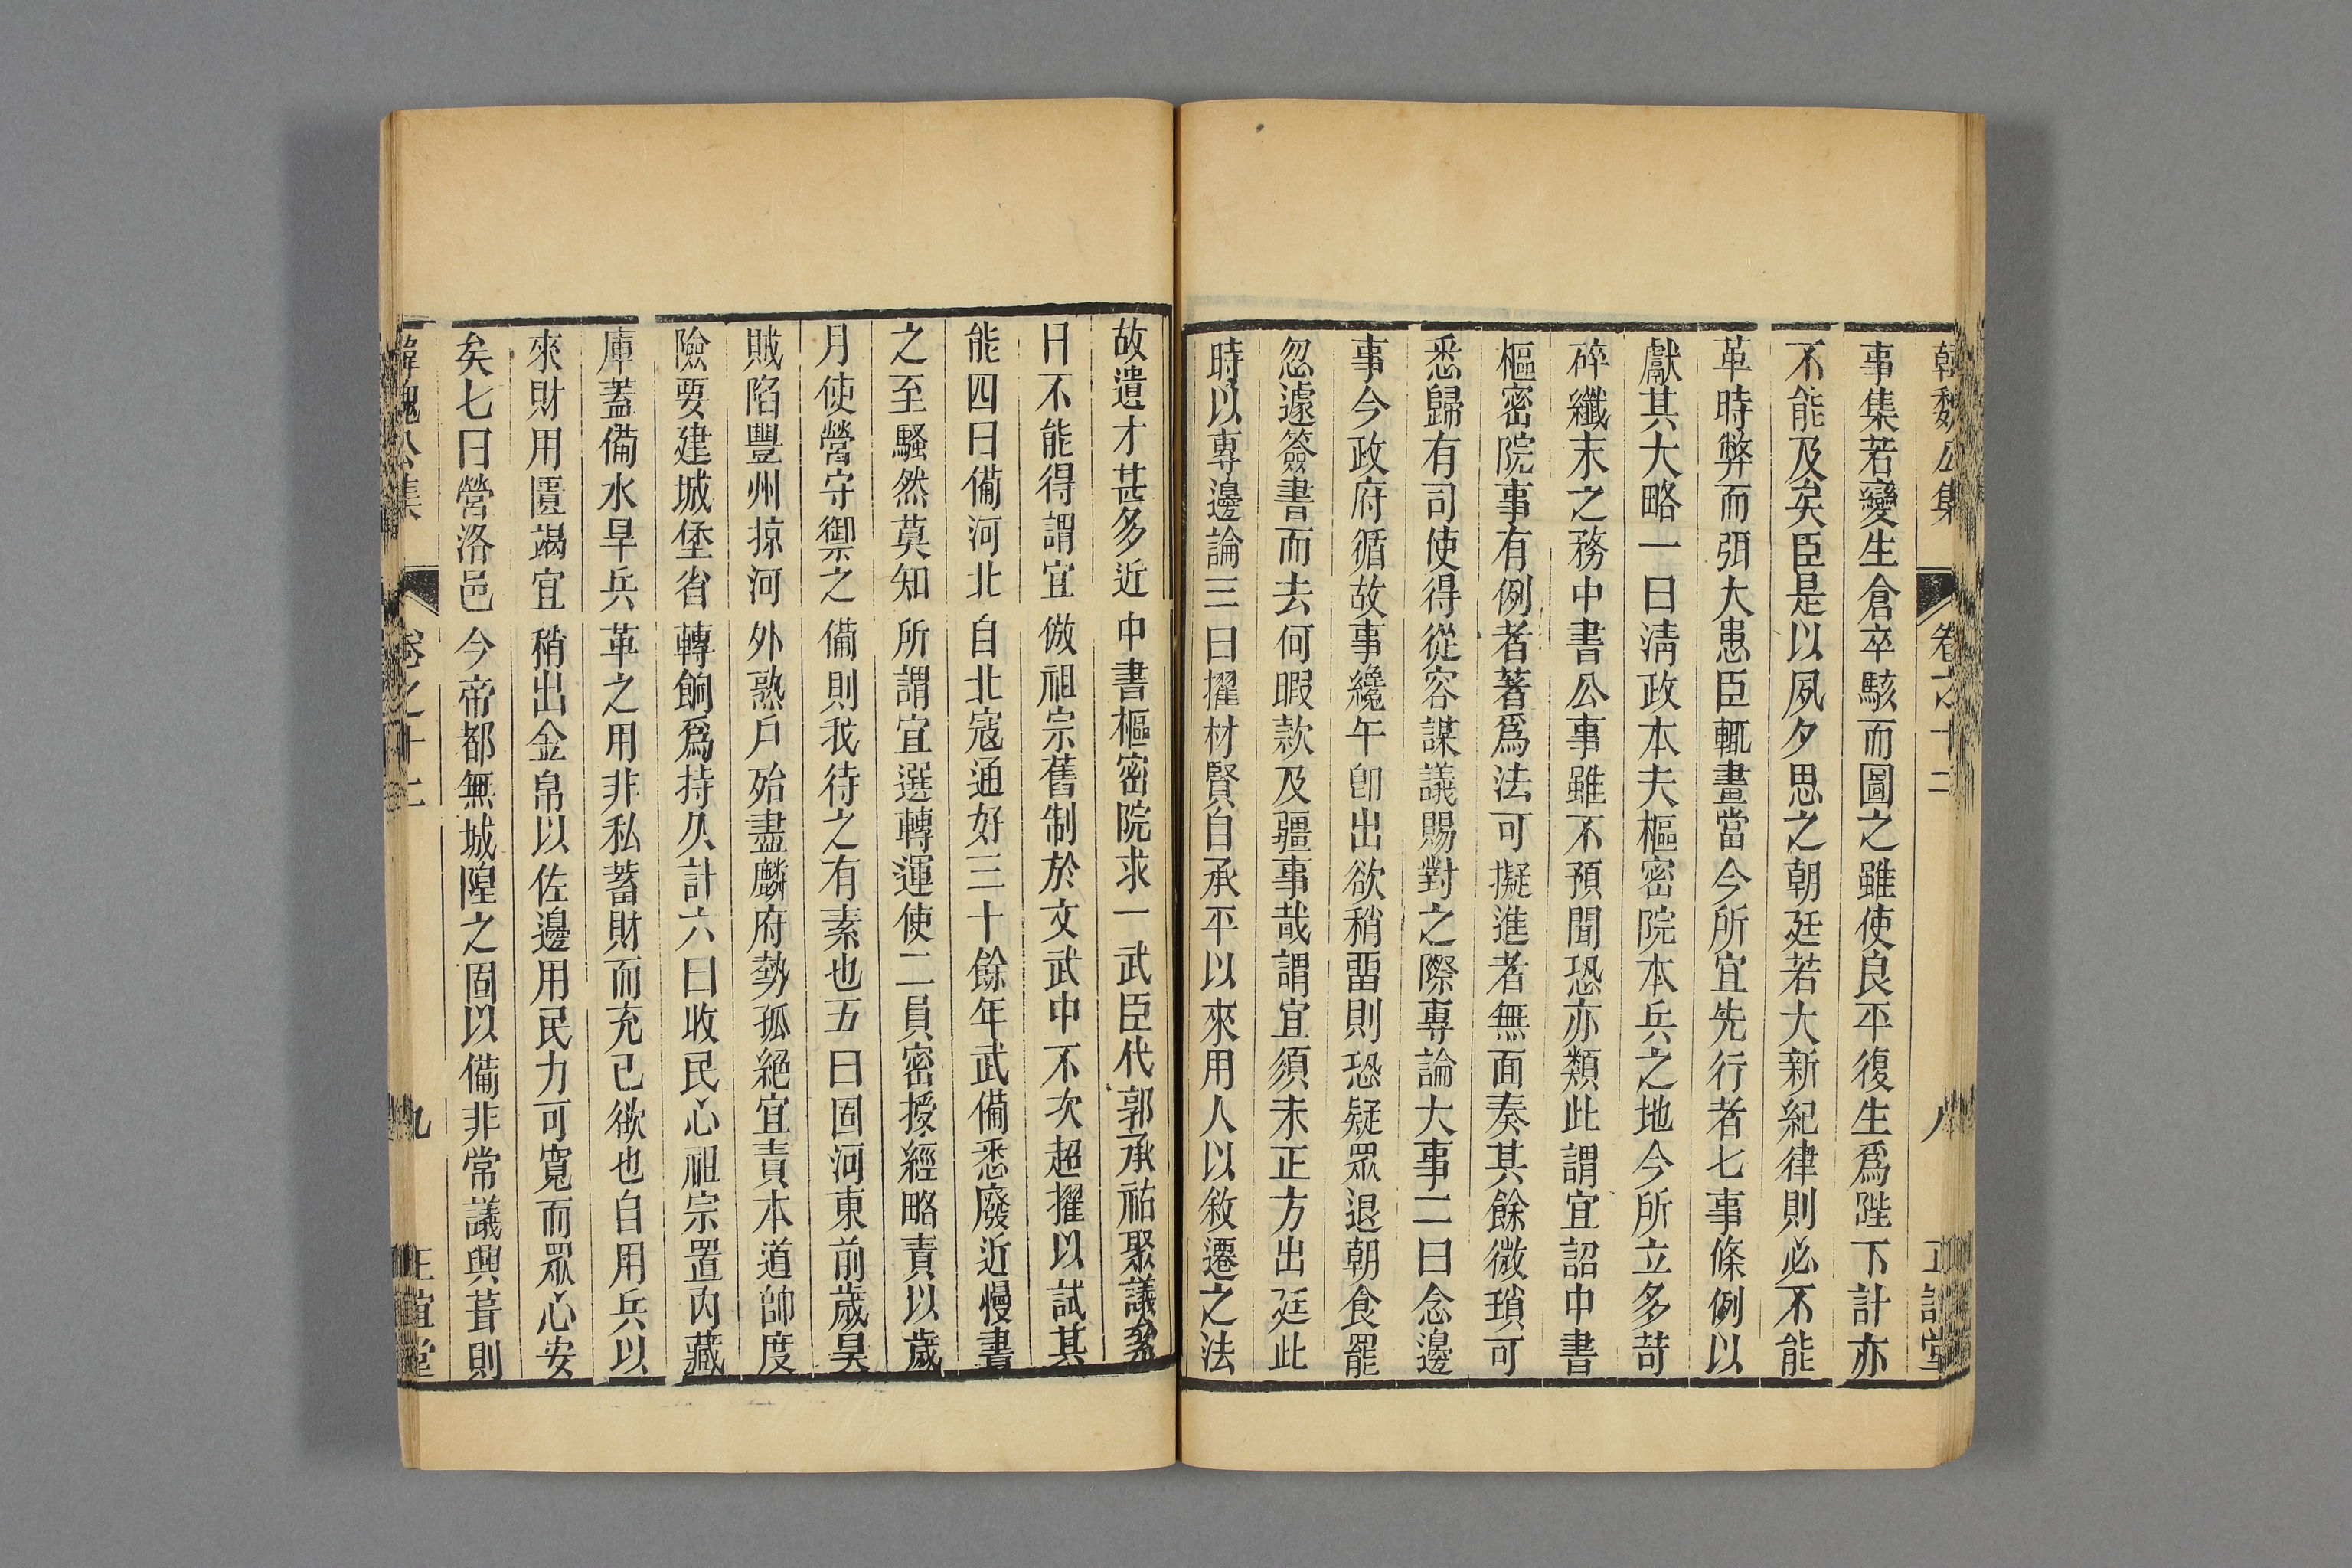 韓魏公集 卷之十二 八 正誼堂
事集若變生倉卒駭而圖之雖使良平復生爲陛下計亦
不能及矣臣是以夙夕思之朝廷若大新紀律則必不能
革時弊而弭大患臣輒畫當今所宜先行者七事條例以
獻其大略一曰淸政本夫樞密院本兵之地今所立多苛
碎纖末之務中書公事雖不預聞恐亦類此謂宜詔中書
樞密院事有例者著爲法可擬進者無面奏其餘微瑣可
悉歸有司使得從容謀議賜對之際專論大事二曰念邊
事今政府循故事纔午卽出欲稍畱則恐疑眾退朝食罷
忽遽簽書而去何暇款及疆事哉謂宜須未正方出廷此
時以專邊論三曰擢材賢自承平以來用人以敘遷之法
故遺才甚多近中書樞密院求一武臣代郭承祐聚議累
日不能得謂宜倣祖宗舊制於文武中不次超擢以試其
能四曰備河北自北寇通好三十餘年武備悉廢近慢書
之至騷然莫知所謂宜選轉運使二員密授經略責以歲
月使營守禦之備則我待之有素也五曰固河東前歲昊
賊陷豐州掠河外熟戶殆盡麟府勢孤絕宜責本道帥度
險要建城堡省轉餉爲持久計六曰收民心祖宗置內藏
庫蓋備水旱兵革之用非私蓄財而充己欲也自用兵以
來財用匱竭宜稍出金帛以佐邊用民力可寬而眾心安
矣七曰營洛邑今帝都無城隍之固以備非常議興葺則
韓魏公集 卷之十二 九 正誼堂